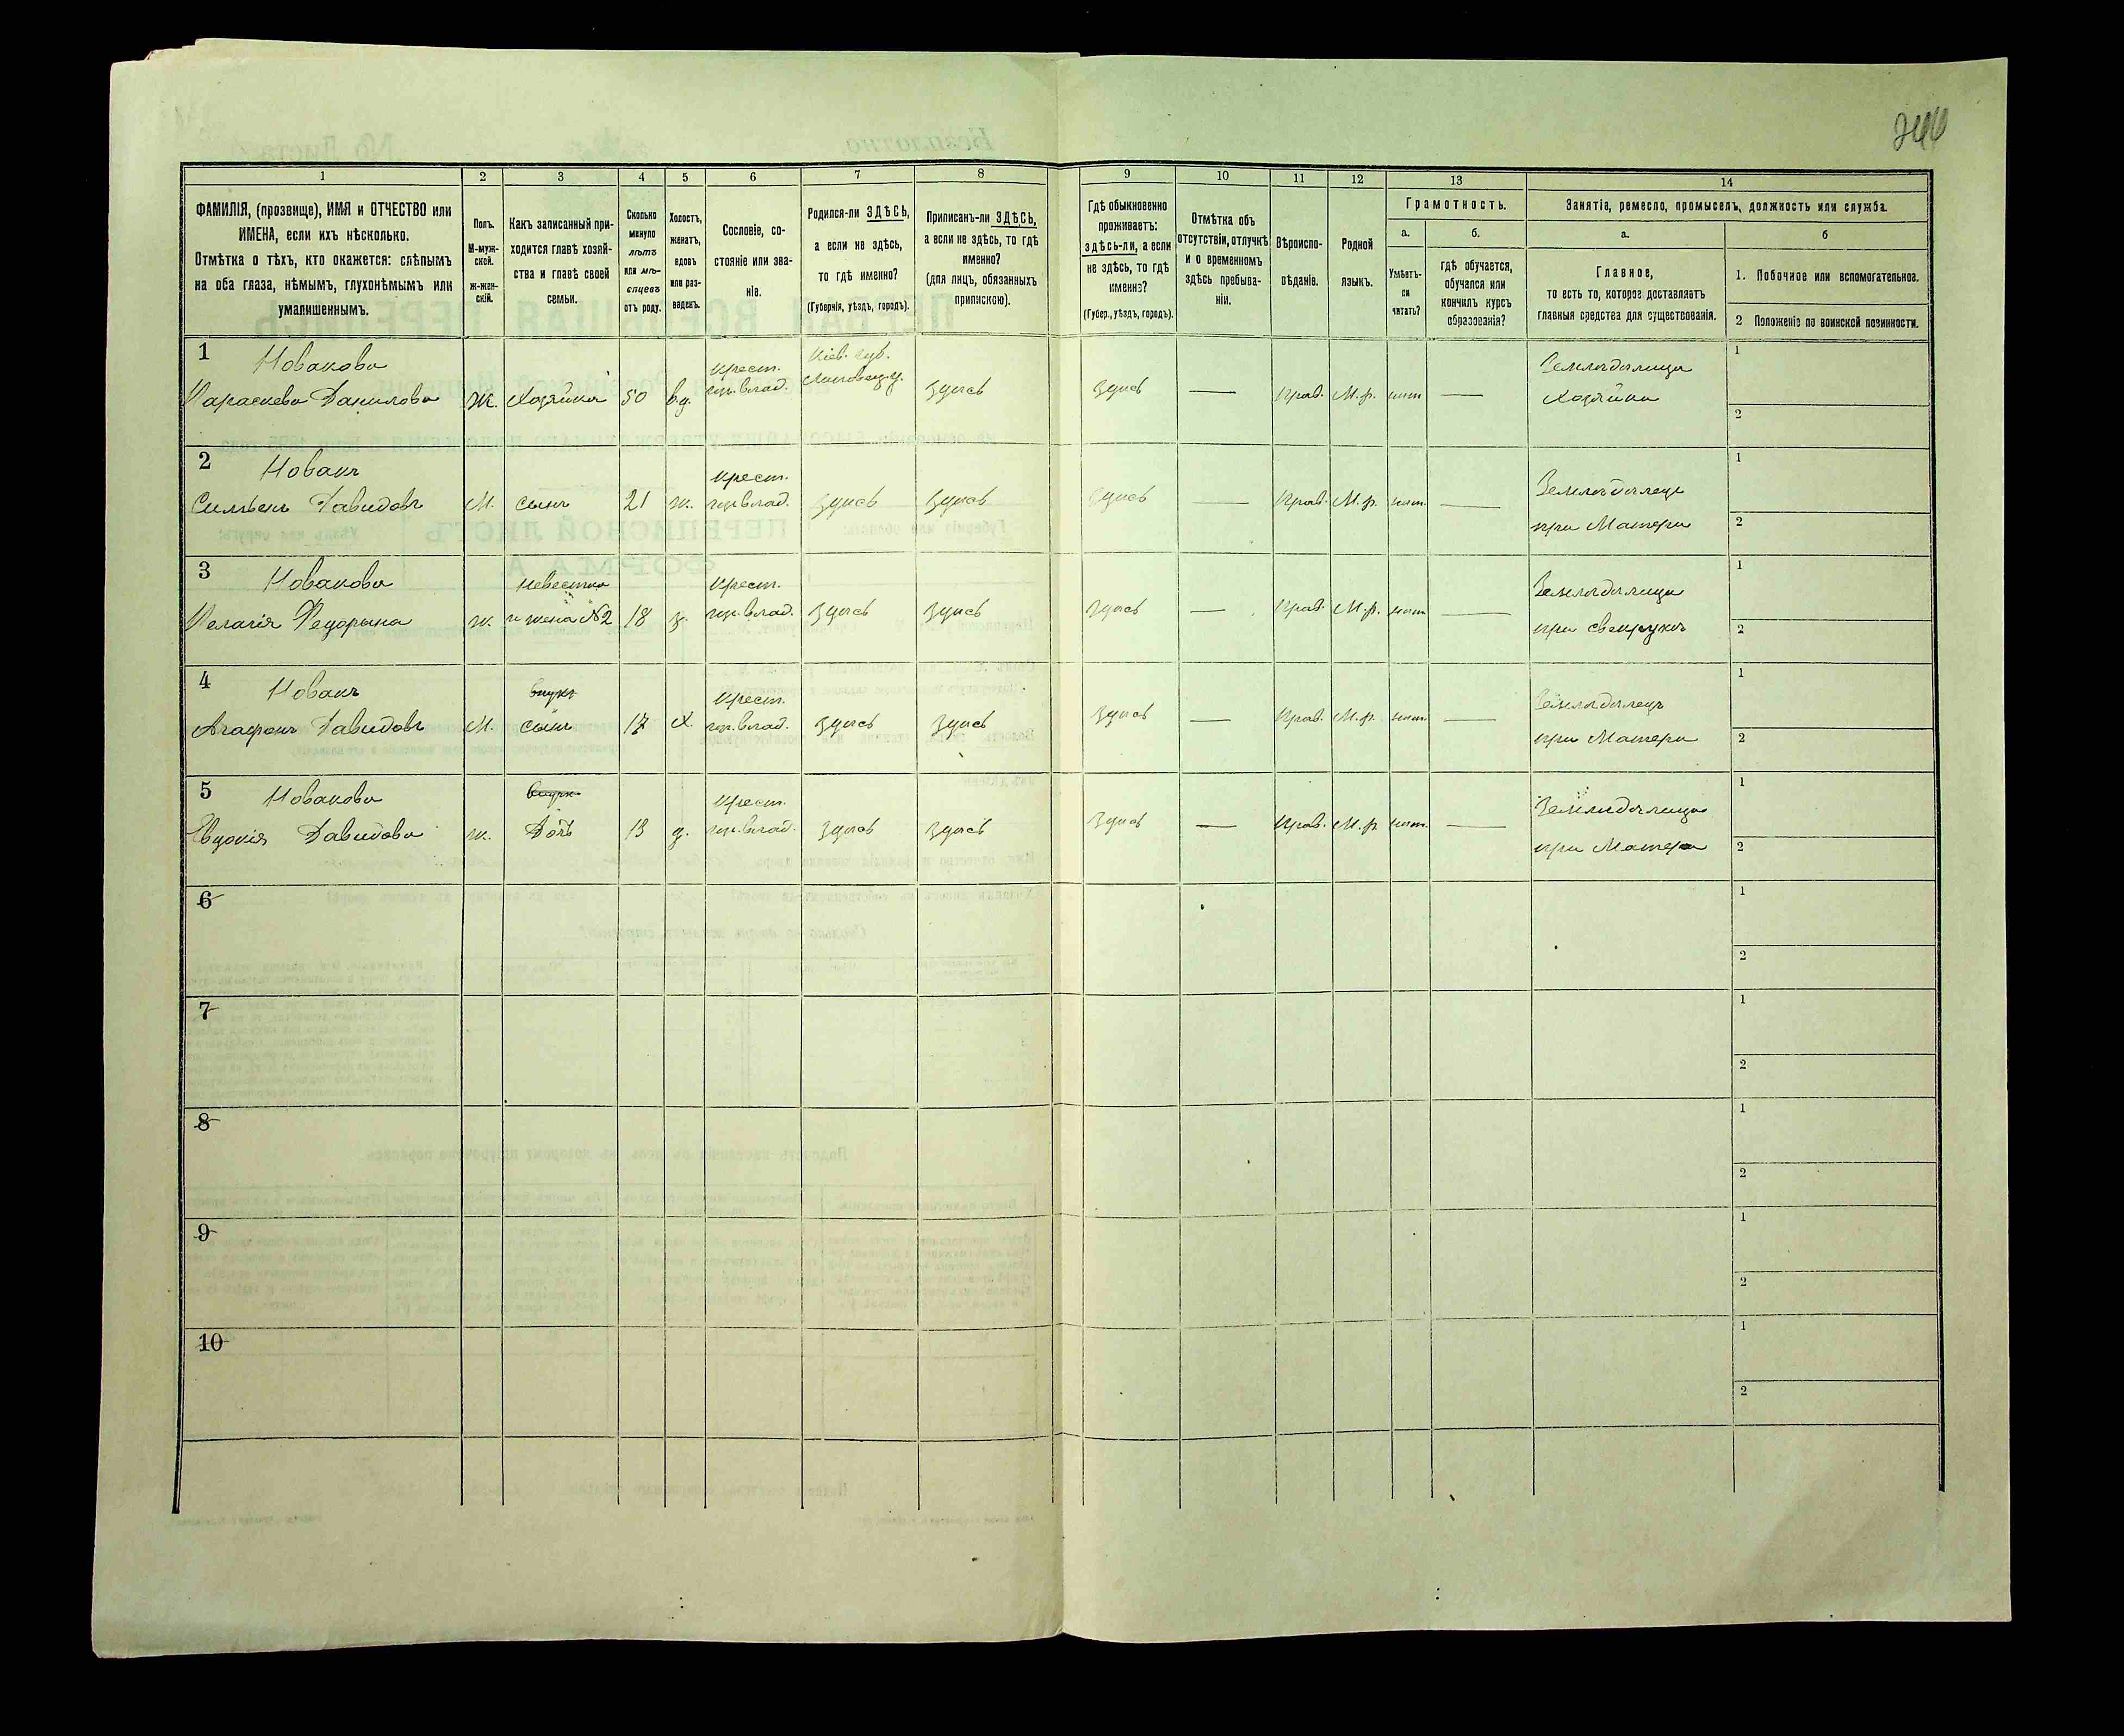 244
1 2 3 4 5 6 7 8 9 10 11 12 13 14
ФАМИЛІЯ, (прозвище), ИМЯ и ОТЧЕСТВО или
ИМЕНА, если ихъ нѣсколько.
Отмѣтка о тѣхъ, кто окажется: слѣпымъ
на оба глаза, нѣмымъ, глухонѣмымъ или
умалишеннымъ.
Полъ.
М-муж-
ской.
ж-жен-
скій.
Какъ записанный при-
ходится главѣ хозяй-
ства и главѣ своей
семьи.
Сколько
минуло
лѣтъ
или мѣ-
сяцевъ
отъ роду.
Холостъ,
женатъ,
вдовъ
или раз-
веденъ.
Сословіе, со-
стояніе или зва-
ніе.
Родился-ли ЗДѢСЬ,
а если не здѣсь,
то гдѣ именно?
(Губернія, уѣздъ, городъ).
Приписанъ-ли ЗДѢСЬ,
а если не здѣсь, то гдѣ
именно?
(для лицъ, обязанныхъ
припискою).
Гдѣ обыкновенно
проживаетъ:
здѣсь-ли, а если
не здѣсь, то гдѣ
именно?
(Губер., уѣздъ, городъ).
Отмѣтка объ
отсутствіи, отлучкѣ
и о временномъ
здѣсь пребыва-
ніи.
Вѣроиспо-
вѣданіе.
Родной
языкъ.
Грамотность.
а.
Умѣетъ-
ли
читать?
б.
гдѣ обучается,
обучался или
кончилъ курсъ
образованія?
Занятіе, ремесло, промыселъ, должность или служба.
а.
Главное,
то есть то, которое доставляетъ
главныя средства для существованія.
б
1. Побочное или вспомогательное.
2 Положеніе по воинской повинности.
1 Новакова Крест. Кіев. губ. Земледѣлица 1
Параскева Данилова Ж. Хозяйка 50 вд. гор. влад. Липовец.у. Здѣсь Здѣсь — Прав. М.р. нѣт — Хозяйка 2
2 Новакъ Крест. Земледѣлецъ 1
Давидовъ М. сынъ 21 ж. гор. влад. Здѣсь Здѣсь Здѣсь — Прав. М.р. нѣт. — при Матери 2
3 Новакова Невестка Крест. Земледѣлица 1
Пелагія Федорына ж. и жена №2 18 з. гор. влад. Здѣсь Здѣсь Здѣсь — Прав. М.р. нѣт — при свекрухѣ 2
4 Новакъ внукъ Крест. Земледѣлецъ 1
Агафонъ Давидовъ М. сынъ 17 Х. гор. влад. Здѣсь Здѣсь Здѣсь — Прав. М.р. нѣт. — при Матери 2
5 Новакова Крест. Земледѣлица 1
Евдокія Давидова ж. Дочь 13 д. гор. влад. Здѣсь Здѣсь Здѣсь — Прав. М.р. нѣт. — при Матери 2
6 1
2
7 1
2
8 1
2
9 1
2
10 1
2